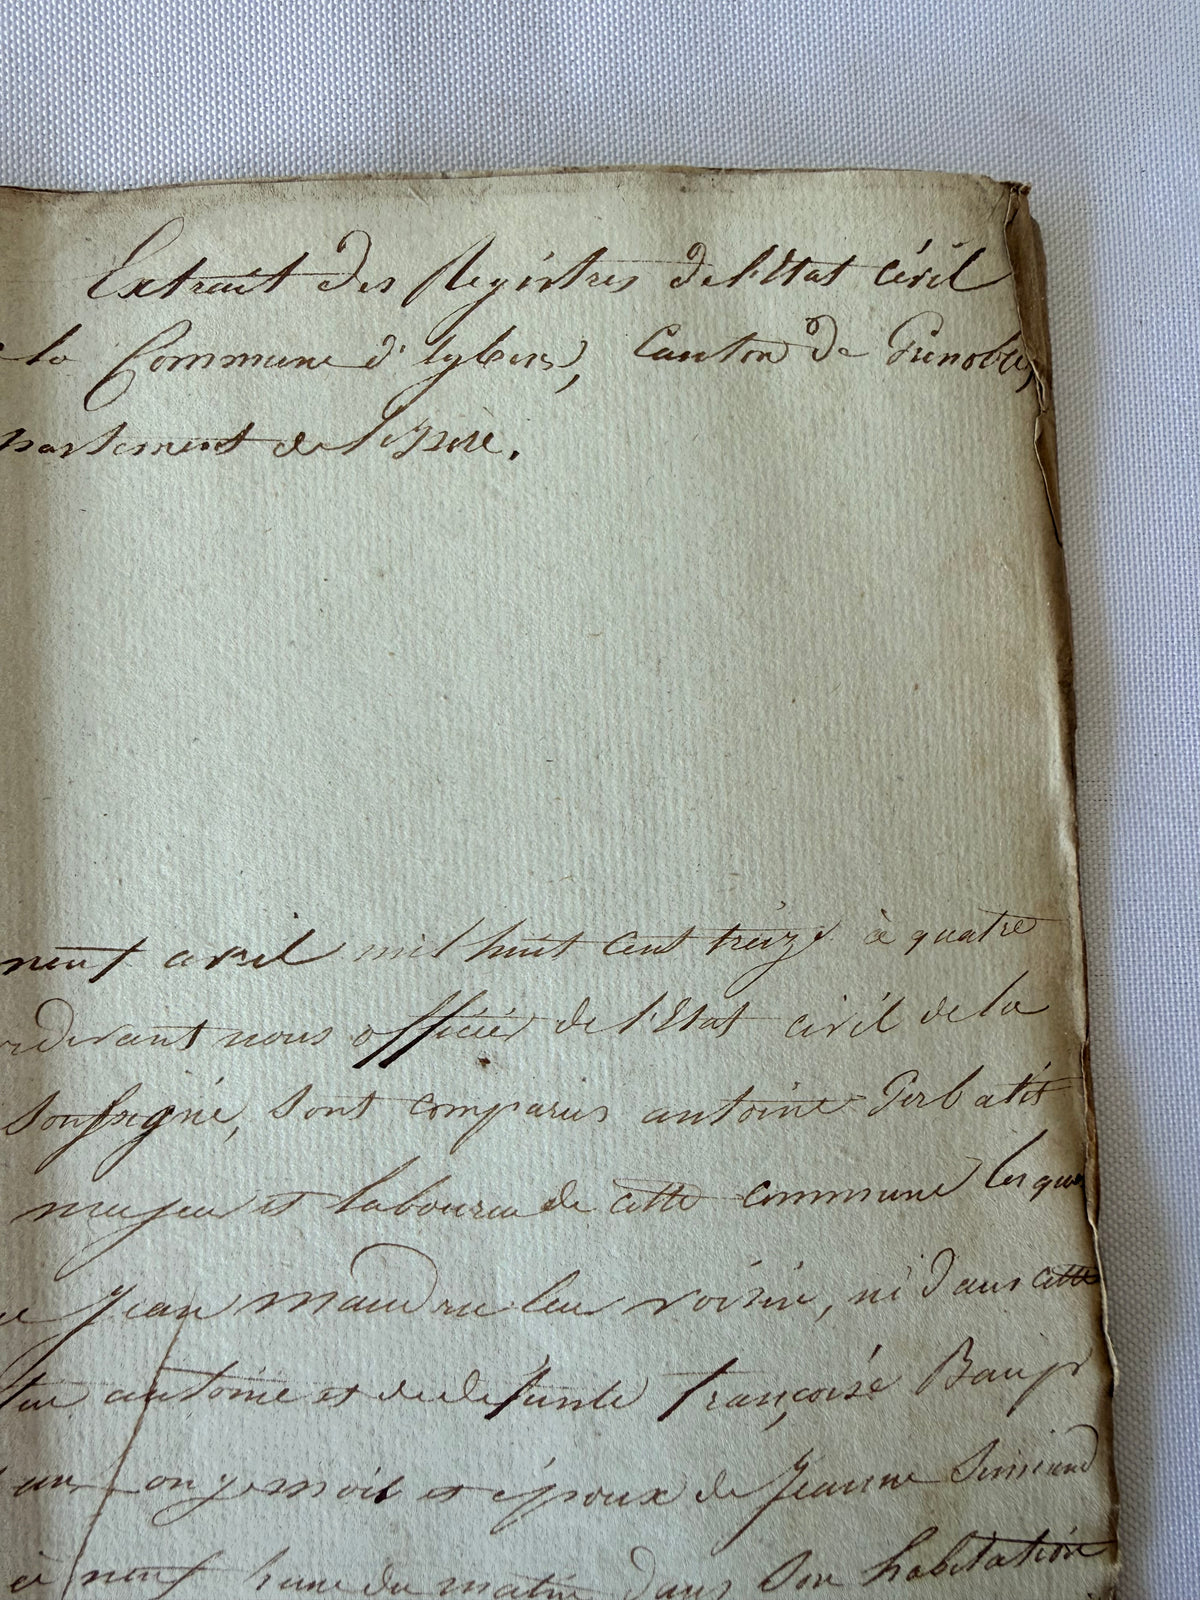 Extrait des Registres de l'Etat Civil
la Commune d'Eybens, Canton de Grenoble,
partement de l'Isere.
neuf avril mil huit cent treize à quatre
devant nous officier de l'Etat civil de la
soussigné, sont comparus antoine Gerbatit
majeur et laboureur de cette commune lesque
Jean maudrue leur voisin, né dans cette
feu antoine et de defunte françoise Baup
ans onze mois et époux de Jeanne Simiand
à neuf heure du matin dans son habitation